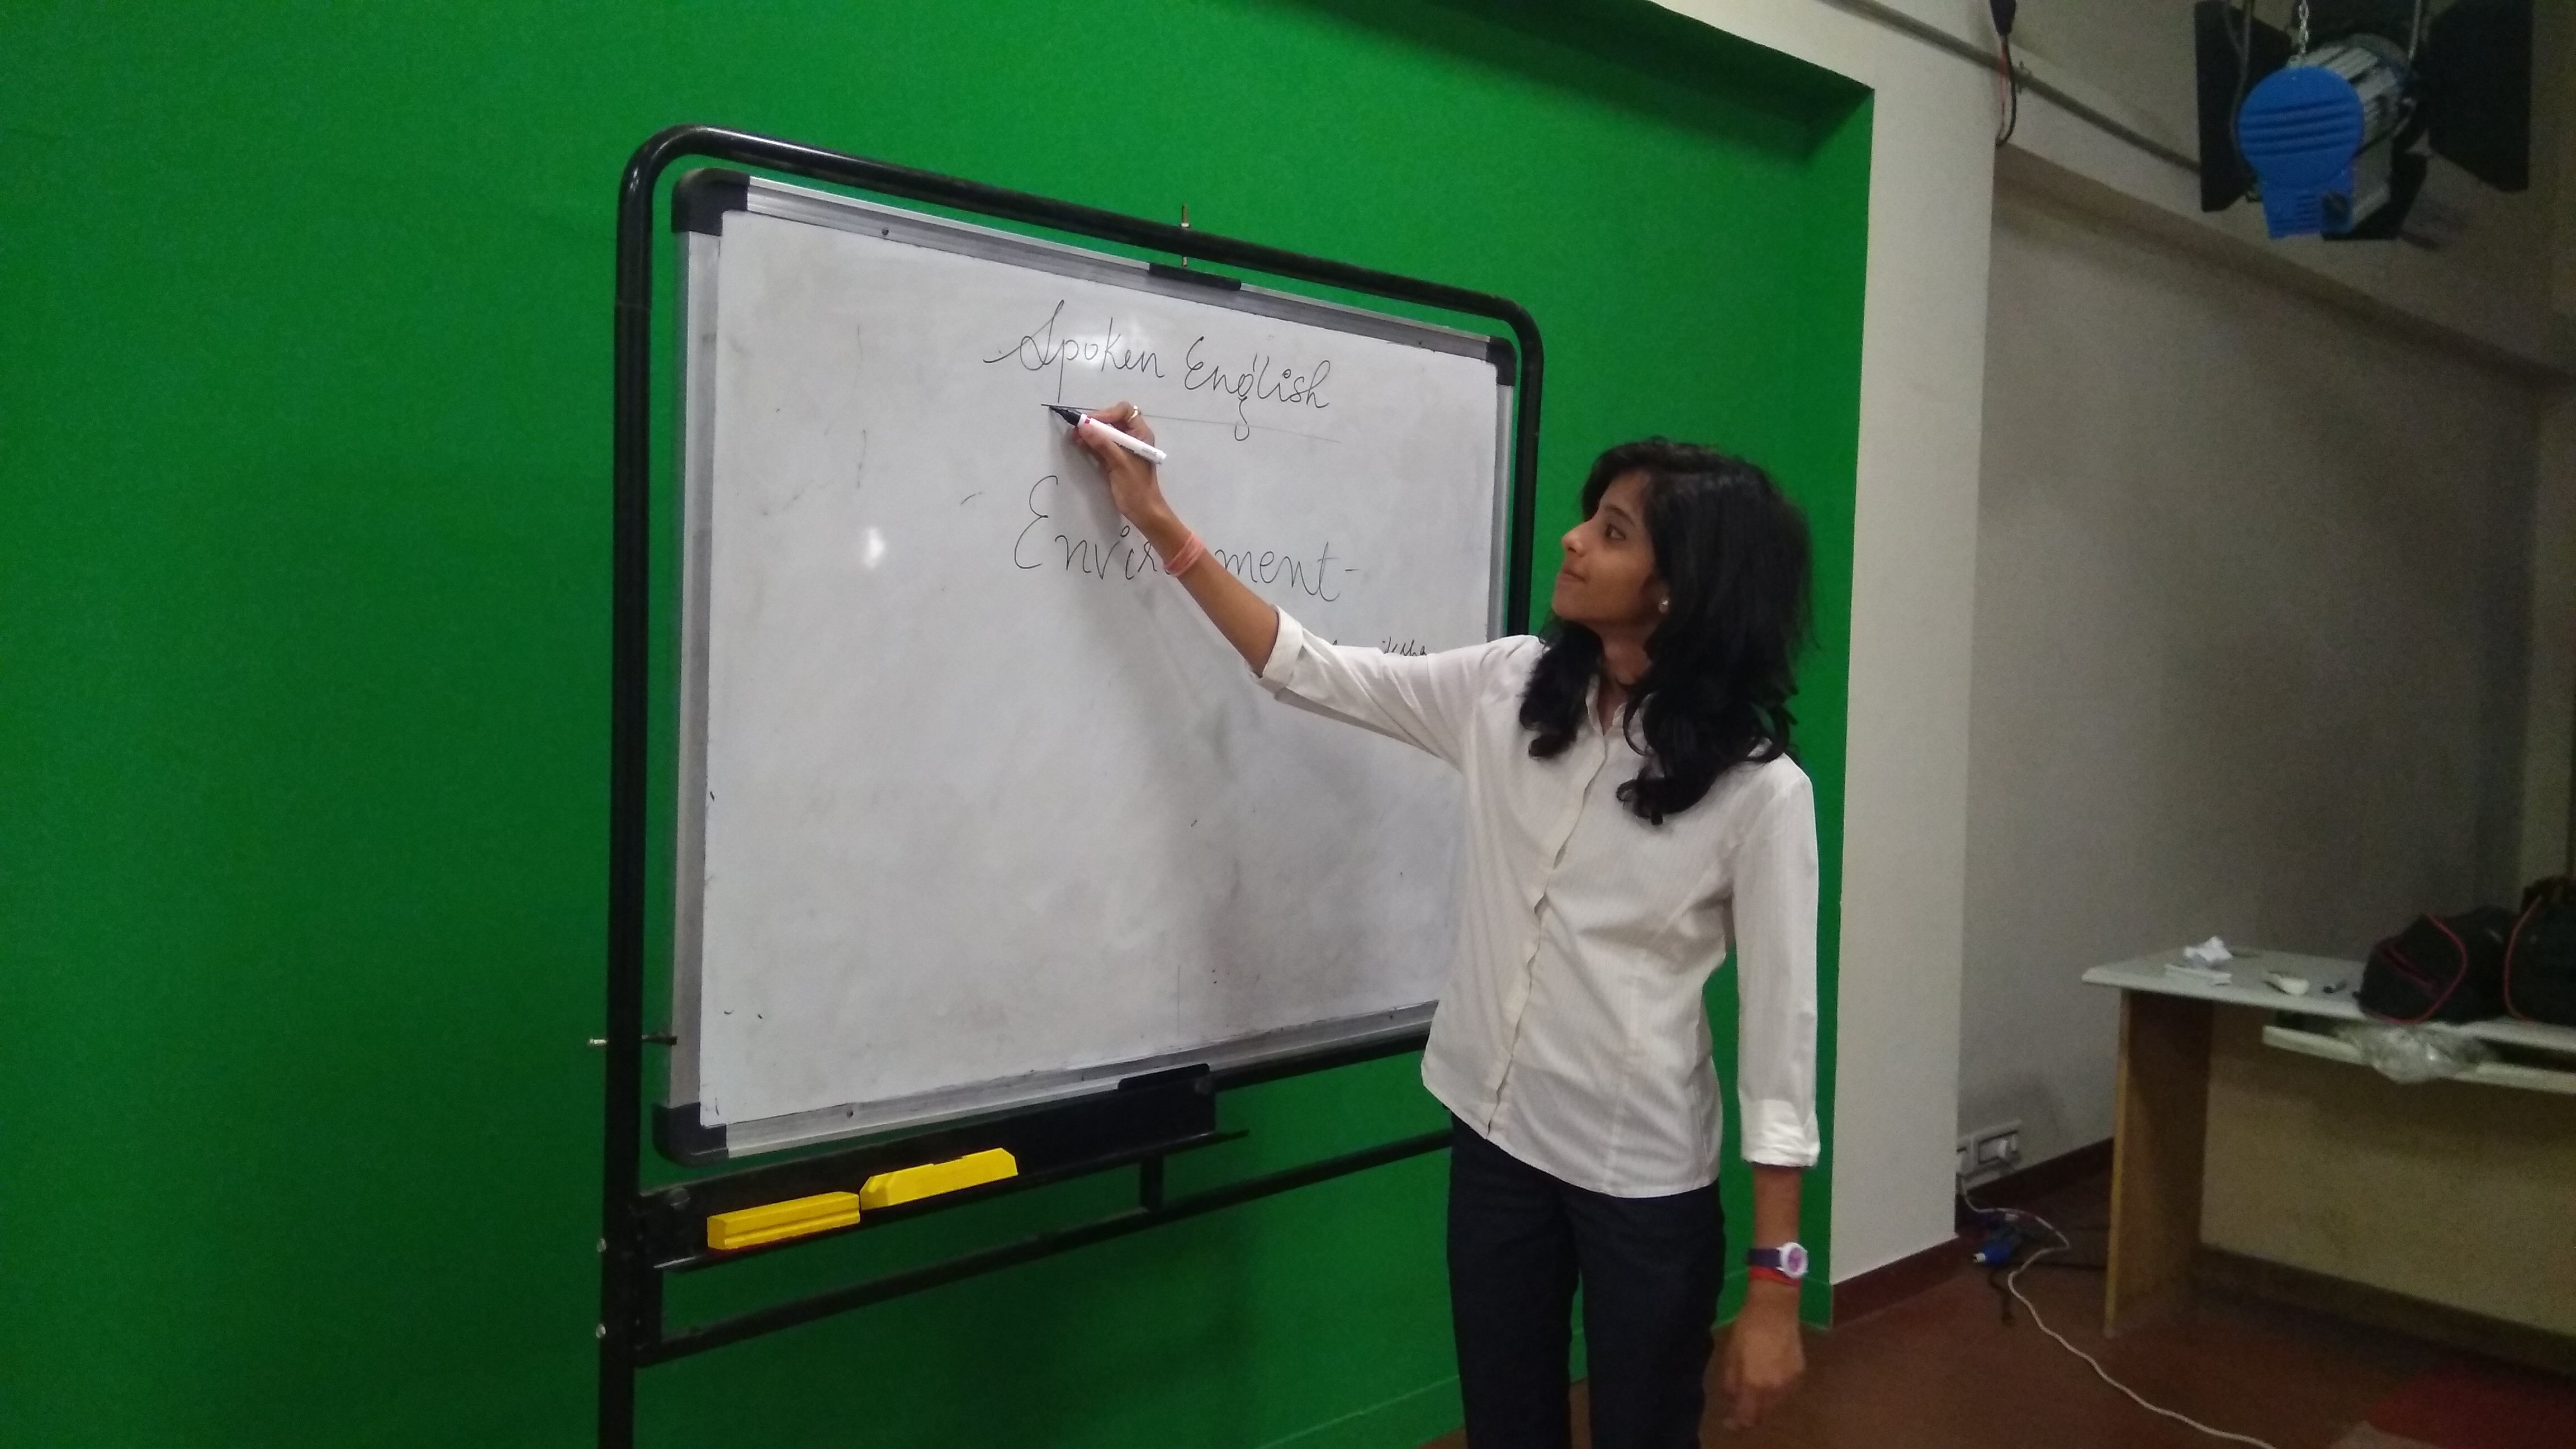 Spoken English
Envir ment